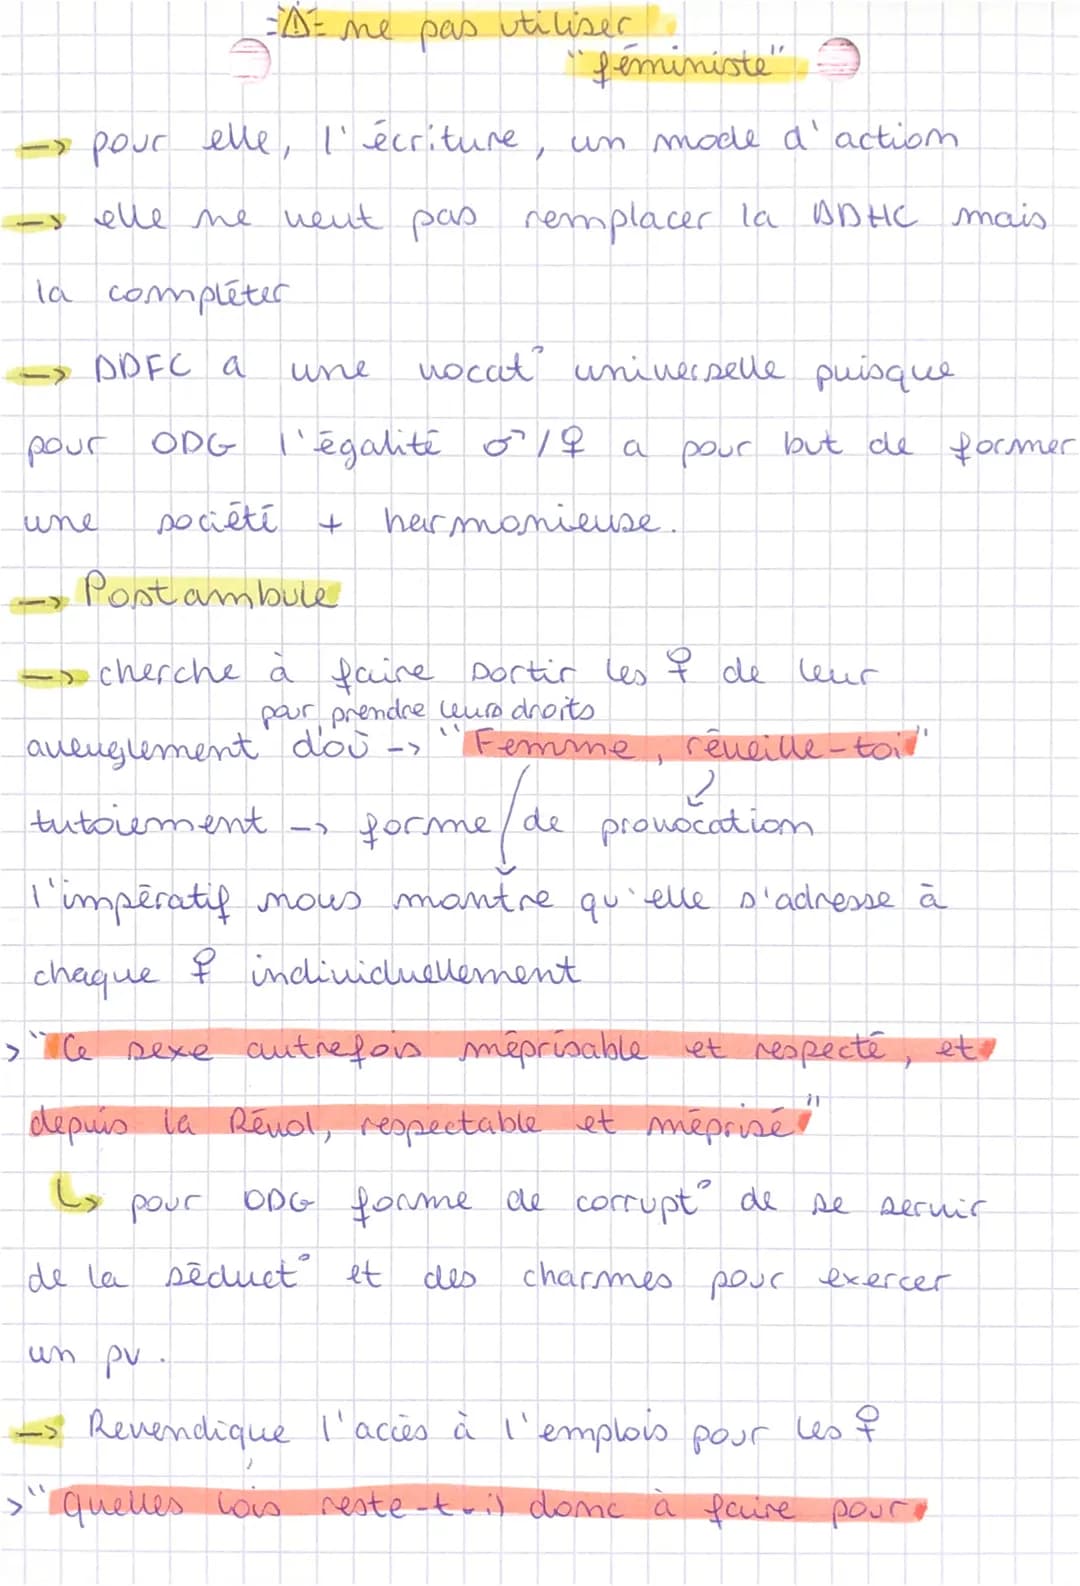 ⚠ ne pas utiliser
"féministe"
→ pour elle, l'écriture, un mode d'action
→ elle ne veut pas remplacer la DDHC mais
la compléter
→ DDFC a une vocat° universelle puisque
pour ODG l'égalité ♂/♀ a pour but de former
une société + harmonieuse.
→ Postambule
→ cherche à faire sortir les ♀ de leur
pour prendre leurs droits
aveuglement d'où -> "Femme, réveille-toi"
tutoiement -> forme de provocation
l'impératif nous montre qu'elle s'adresse à
chaque ♀ individuellement
>"Ce sexe autrefois méprisable et respecté, et
depuis la Révol, respectable et méprisé"
↳ pour ODG forme de corrupt° de se servir
de la séduct° et des charmes pour exercer
un pv.
→ Revendique l'accès à l'emplois pour les ♀
>"quelles lois reste-t-il donc à faire pour